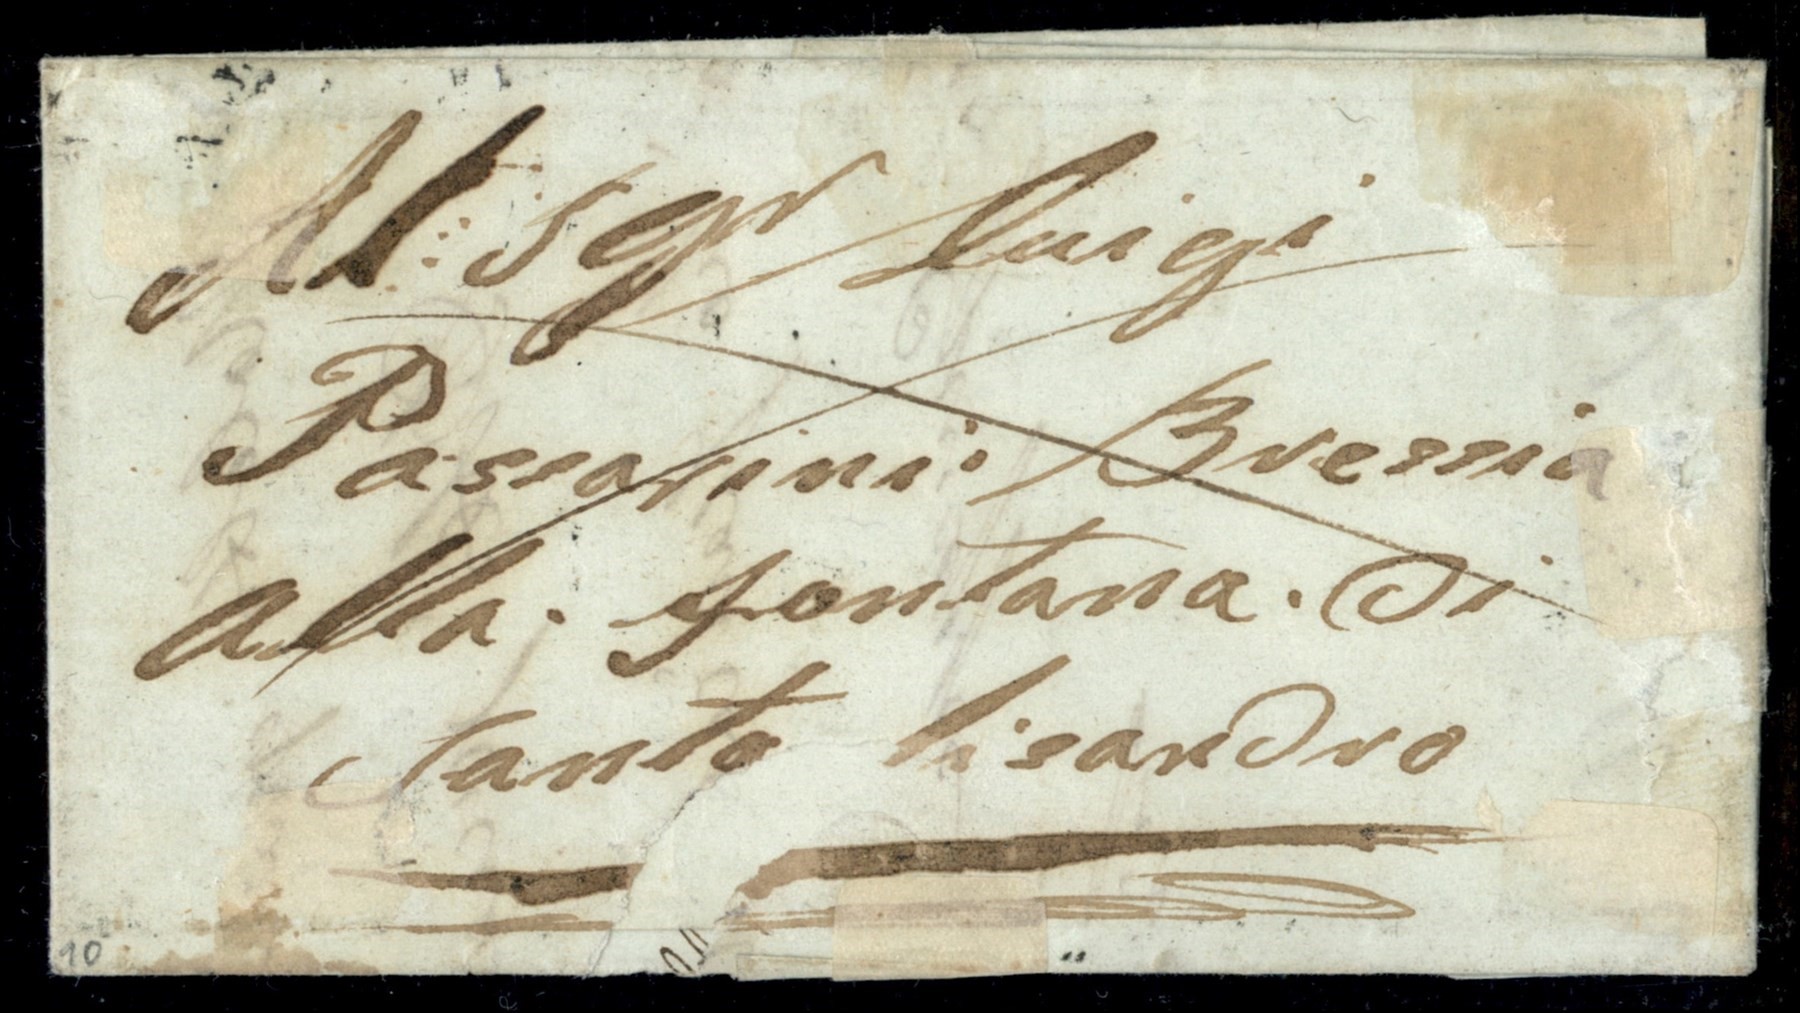 Al: Sgr Luigi
Passarini: Bressia
alla. fontana. di
Santo lisandro
10